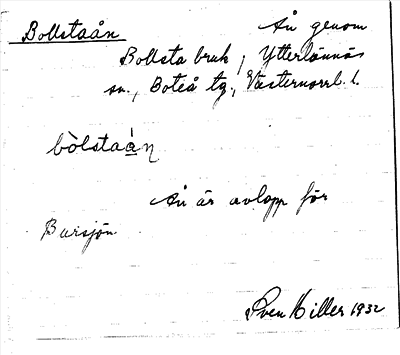 Bollstaån
Å genom
Bollsta bruk, Ytterlännäs
sn., Boteå tg., Västernorrl. l.
bòlstaàn
Ån är avlopp för
Bursjön
Sven Hiller 1932